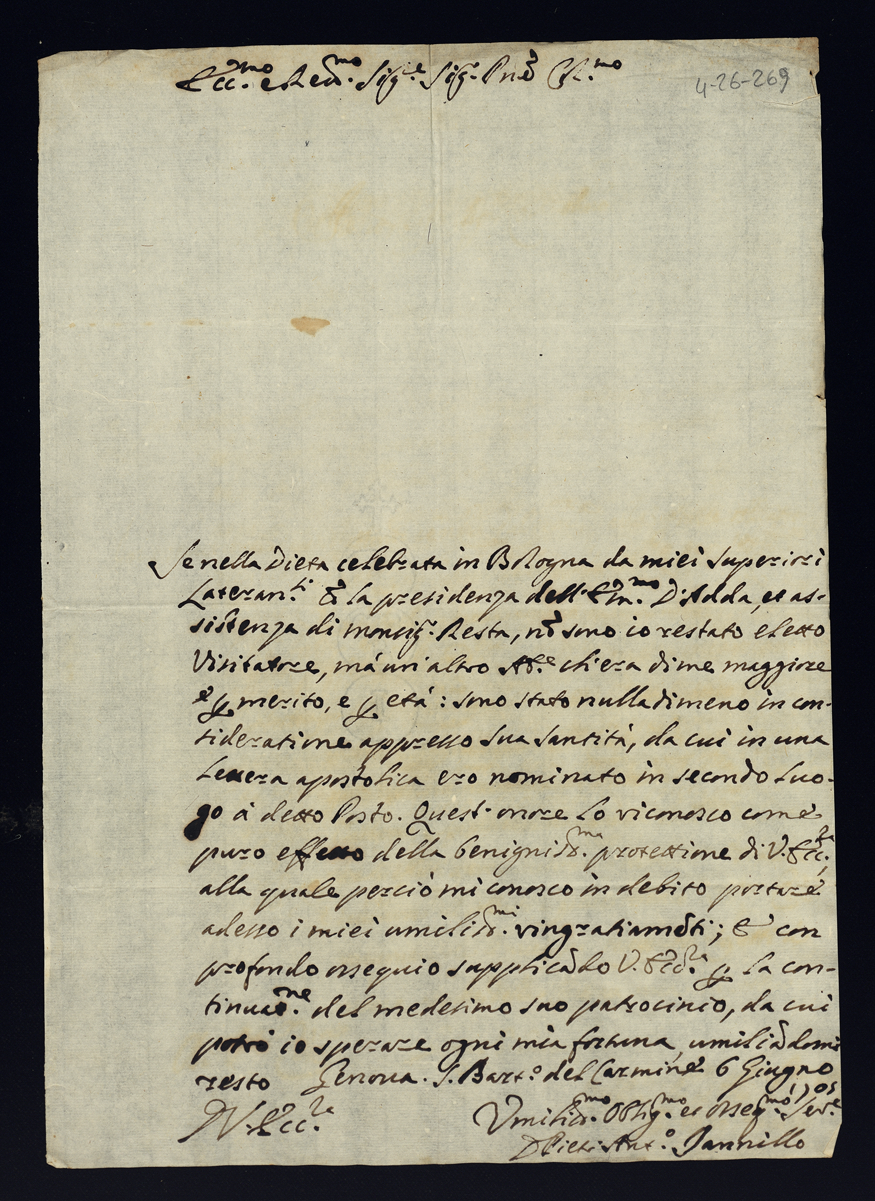 Ecc.mo e Red.mo Sig.e Sig. Pnē Col.mo
4-26-269
Se nella Dieta celebrata in Bologna da miei Superiori
Lateran.ti & la presidenza dell'Em.mo D'Adda, et as-
sistenza di monsig.r Resta, nō sono io restato eletto
Visitatore, má un'altro Ab.e ch'era di me maggiore
e p merito, e p etá: sono stato nulladimeno in con-
sideratione appresso Sua Santitá, da cui in una
Lettera apostolica ero nominato in secondo luo-
go á detto Posto. Quest'onore lo riconosco come
puro effetto della benignis.ma protettione di V. Ecc.za,
alla quale perció mi conosco in debito portare
adesso i miei umilis.mi ringratiamēti; & con
profondo ossequio supplicādo V. Ecc.za p la con-
tinuaō.ne del medesimo suo patrocinio, da cui
potró io sperare ogni mia fortuna, umiliādomi
resto Genova. S. Bart.o del Carmine 6 Giugno 1705
D V. Ecc.za
Umilis.mo Oblig.mo et osseq.mo Ser.e
D Pietr'Ant.o Jannillo